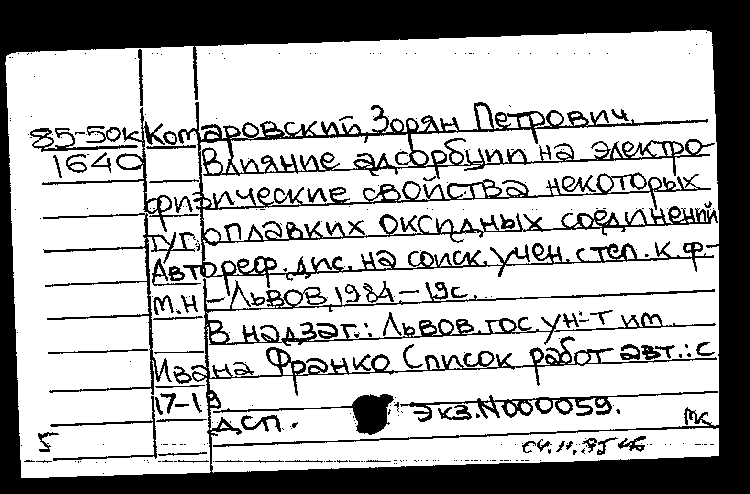 85-50к Комаровский, Зорян Петрович.
1640 Влияние адсорбции на электро-
физические свойства некоторых
тугоплавких оксидных соединений
Автореф. дис. на соиск. учен. степ. к.ф.-
м.н - Львов, 1984. - 19с.
В надзаг.: Львов. гос. ун-т им.
Ивана Франко. Список работ авт.: с
17-19
Д.СП. Экз. N000059.
мк